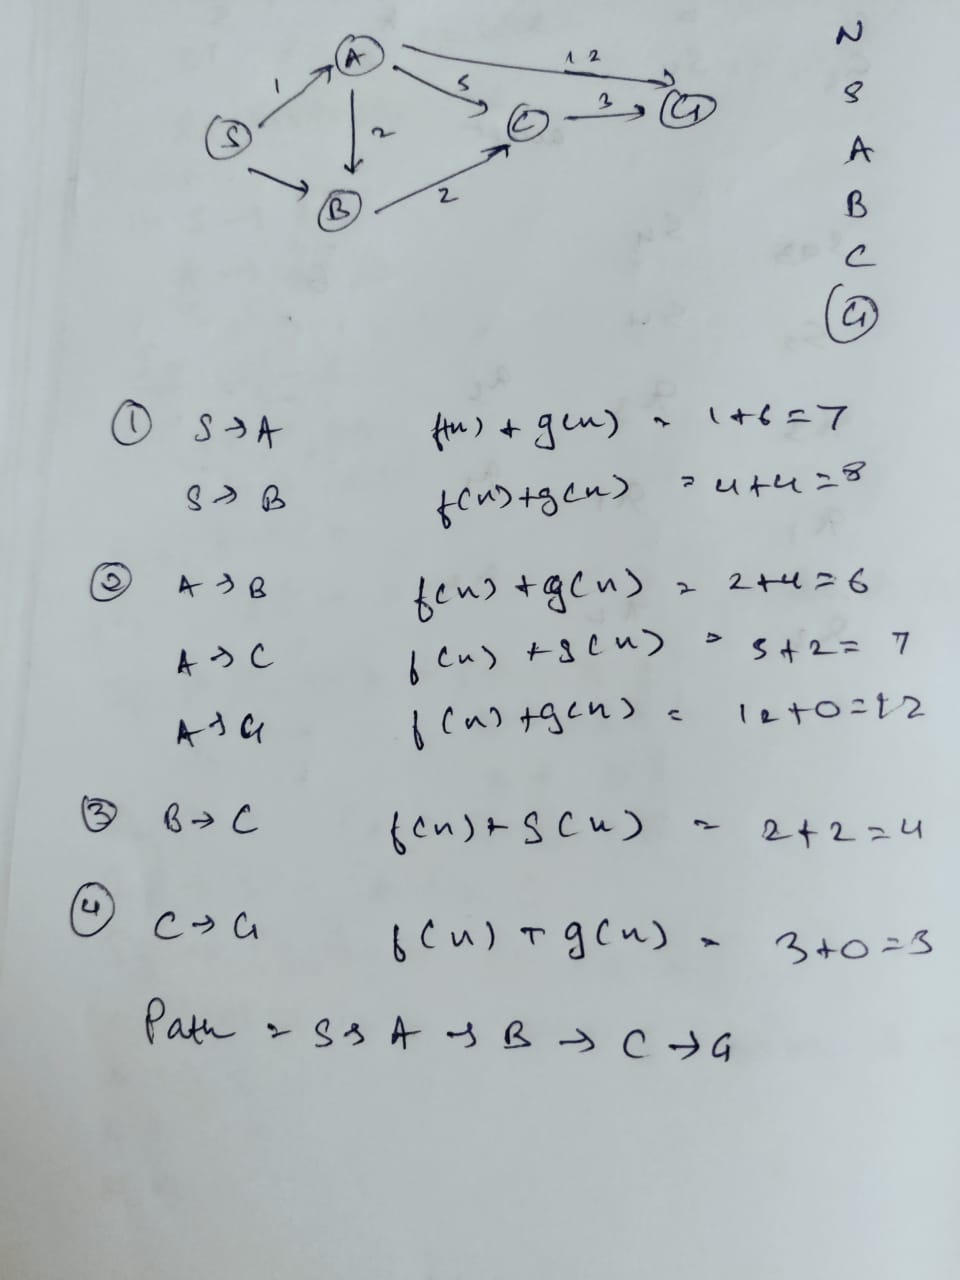 A
1 2
N
1
5
S
S
C
3
G
2
A
B
2
B
C
G
① S → A f(n) + g(n) = 1+6=7
S → B f(n)+g(n) = 4+4=8
② A → B f(n) + g(n) = 2+4=6
A → C f(n) + g(n) = 5+2= 7
A → G f(n)+g(n) = 12+0=12
③ B → C f(n)+g(n) = 2+2=4
④ C → G f(n) + g(n) = 3+0=3
Path = S → A → B → C → G